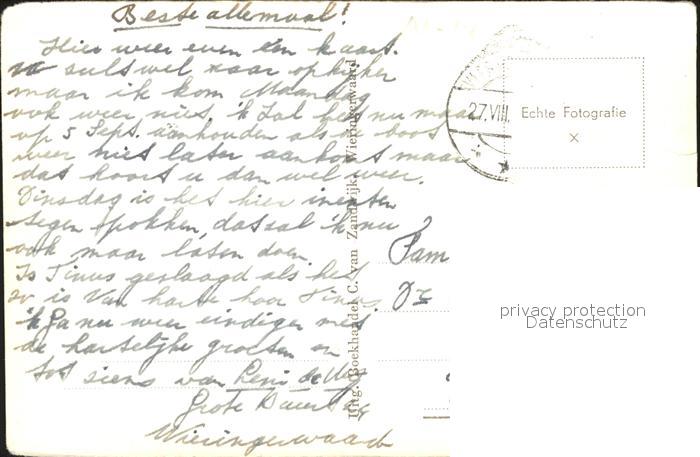 Beste allemaal!
Hier weer even een kaart.
sult wel naar opkijken
maar ik kom Maandag
ook weer niet, 'k Zal het nu maar
op 5 Sept. aanhouden als de boot
weer niet later aankomt maar
dat hoort u dan wel weer.
Dinsdag is het hier inenten
tegen pokken, dat zal 'k nu
ook maar laten doen.
Is Tinus geslaagd als het
zo is Van harte hoor Tinus
'k Ga nu weer eindigen met
de hartelijke groeten en
tot siens van Leni de
Grote
Wieringerwaard
Uitg. Boekhandel C. van Zandwijk, Wieringerwaard
27.VIII
Echte Fotografie
X
Fam
privacy protection
Datenschutz